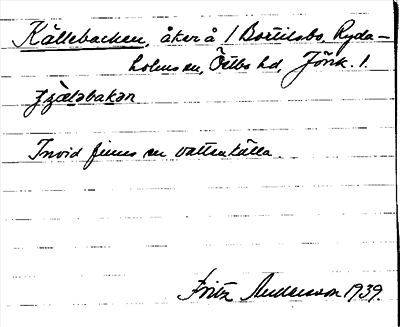 Källebacken, åker å 1 Bortilsbo, Ryda-
holms sn, Östbo hd, Jönk. l.
Invid finnes en vattenkälla.
Fritz Andersson 1939.